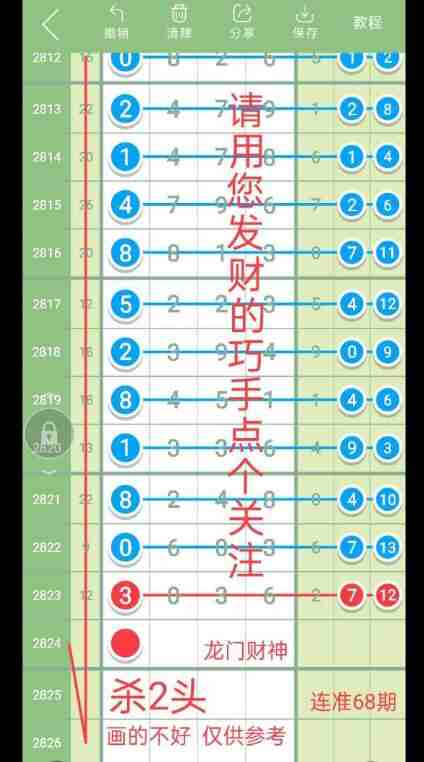 撤销 清除 分享 保存 教程
2812 16 0 8 2 6 5 1 2
2813 22 2 4 7 9 1 2 8
2814 20 1 4 7 8 6 1 4
2815 26 4 7 9 6 7 2 6
2816 20 8 8 1 3 8 7 11
2817 12 5 2 2 3 5 4 12
2818 18 2 3 9 4 9 0 9
2819 18 8 4 5 1 1 4 6
2820 13 1 3 3 6 4 9 3
2821 22 8 2 4 8 8 4 10
2822 9 0 6 0 3 6 7 13
2823 12 3 0 3 6 2 7 12
请用您发财的巧手点个关注
2824 龙门财神
2825 杀2头 连准68期
2826 画的不好 仅供参考